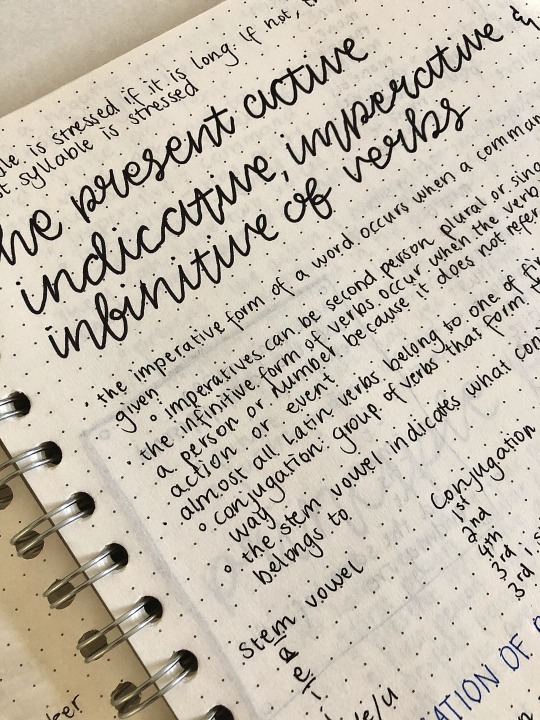 is stressed if it is long. If not, th
syllable is stressed
he present active
indicative, imperative &
infinitive of verbs
• the imperative form of a word occurs when a comman
given
◦ imperatives can be second person plural or sing
• the infinitive form of verbs occur when the verb
a person or number because it does not refer
action or event
• almost all Latin verbs belong to one of fiv
◦ conjugation: group of verbs that form th
way
◦ the stem vowel indicates what con
belongs to
Stem vowel Conjugation
ā 1st
ē 2nd
ī 4th
3rd i-s
e/u 3rd
ATION OF